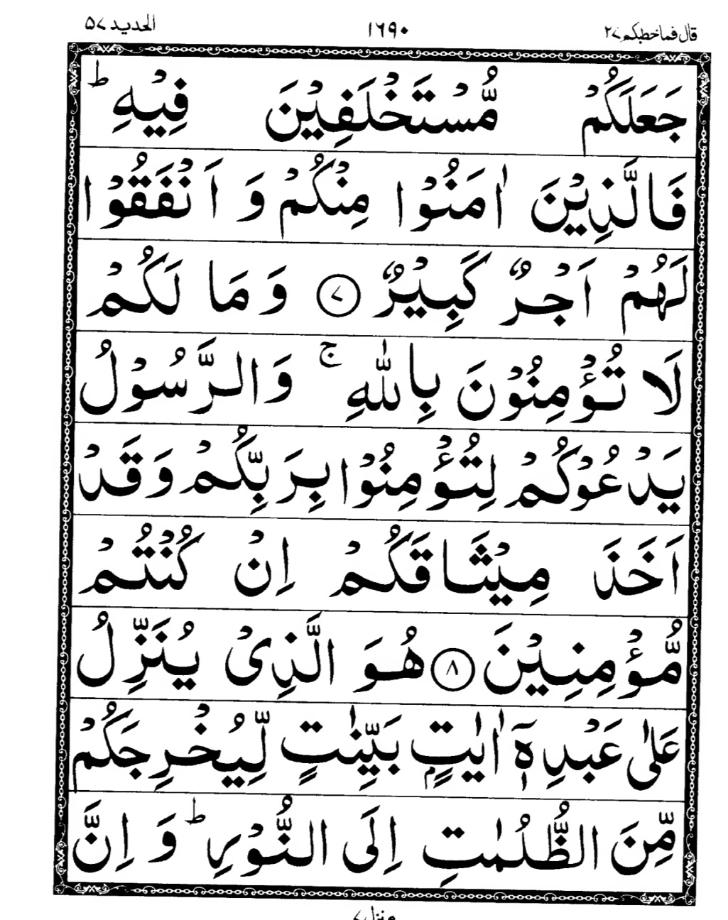 قال فما خطبكم ٢٧ ١٦٩٠ الحدید ٥٧
جَعَلَكُمْ مُّسْتَخْلَفِیْنَ فِیْهِ ؕ
فَالَّذِیْنَ اٰمَنُوْا مِنْكُمْ وَ اَنْفَقُوْا
لَهُمْ اَجْرٌ كَبِیْرٌ ﴿۷﴾ وَ مَا لَكُمْ
لَا تُؤْمِنُوْنَ بِاللّٰهِ ۚ وَالرَّسُوْلُ
یَدْعُوْكُمْ لِتُؤْمِنُوْا بِرَبِّكُمْ وَقَدْ
اَخَذَ مِیْثَاقَكُمْ اِنْ كُنْتُمْ
مُّؤْمِنِیْنَ ﴿۸﴾ هُوَ الَّذِیْ یُنَزِّلُ
عَلٰی عَبْدِهٖۤ اٰیٰتٍۭ بَیِّنٰتٍ لِّیُخْرِجَكُمْ
مِّنَ الظُّلُمٰتِ اِلَی النُّوْرِ ؕ وَ اِنَّ
منزل ۷